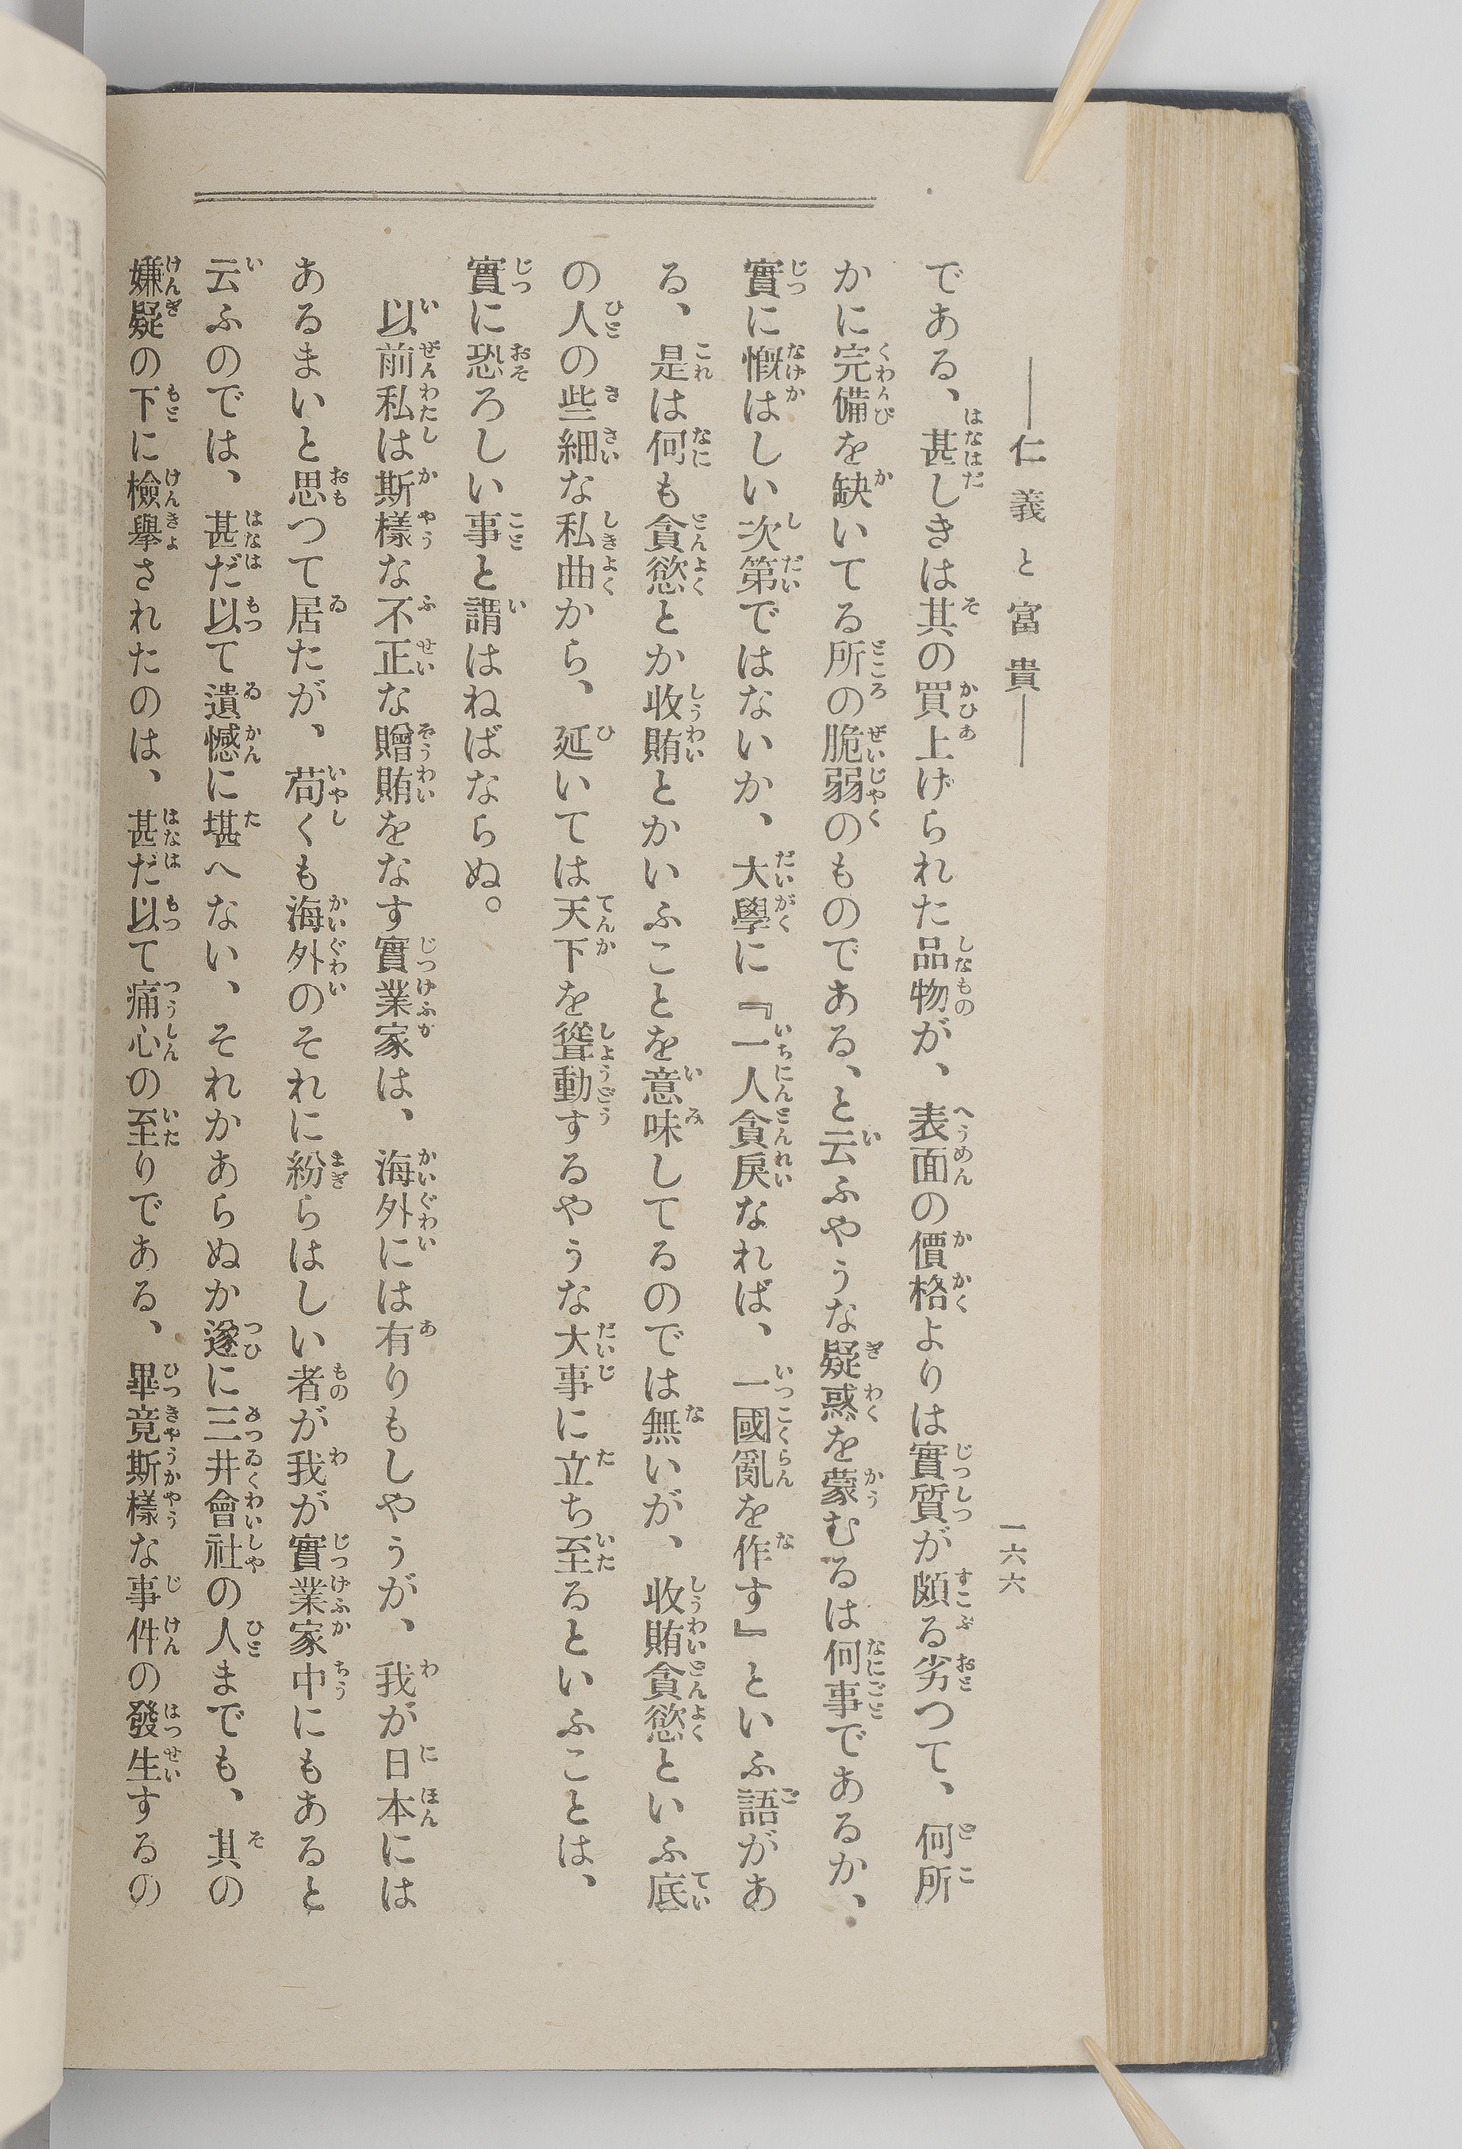 ――仁義と富貴――
一六六
である、甚しきは其の買上げられた品物が、表面の價格よりは實質が頗る劣つて、何所
かに完備を缺いてる所の脆弱のものである、と云ふやうな疑惑を蒙むるは何事であるか、
實に慨はしい次第ではないか、大學に『一人貪戻なれば、一國亂を作す』といふ語があ
る、是は何も貪慾とか收賄とかいふことを意味してるのでは無いが、收賄貪慾といふ底
の人の些細な私曲から、延いては天下を聳動するやうな大事に立ち至るといふことは、
實に恐ろしい事と謂はねばならぬ。
以前私は斯樣な不正な贈賄をなす實業家は、海外には有りもしやうが、我が日本には
あるまいと思つて居たが、苟くも海外のそれに紛らはしい者が我が實業家中にもあると
云ふのでは、甚だ以て遺憾に堪へない、それかあらぬか遂に三井會社の人までも、其の
嫌疑の下に檢擧されたのは、甚だ以て痛心の至りである、畢竟斯樣な事件の發生するの